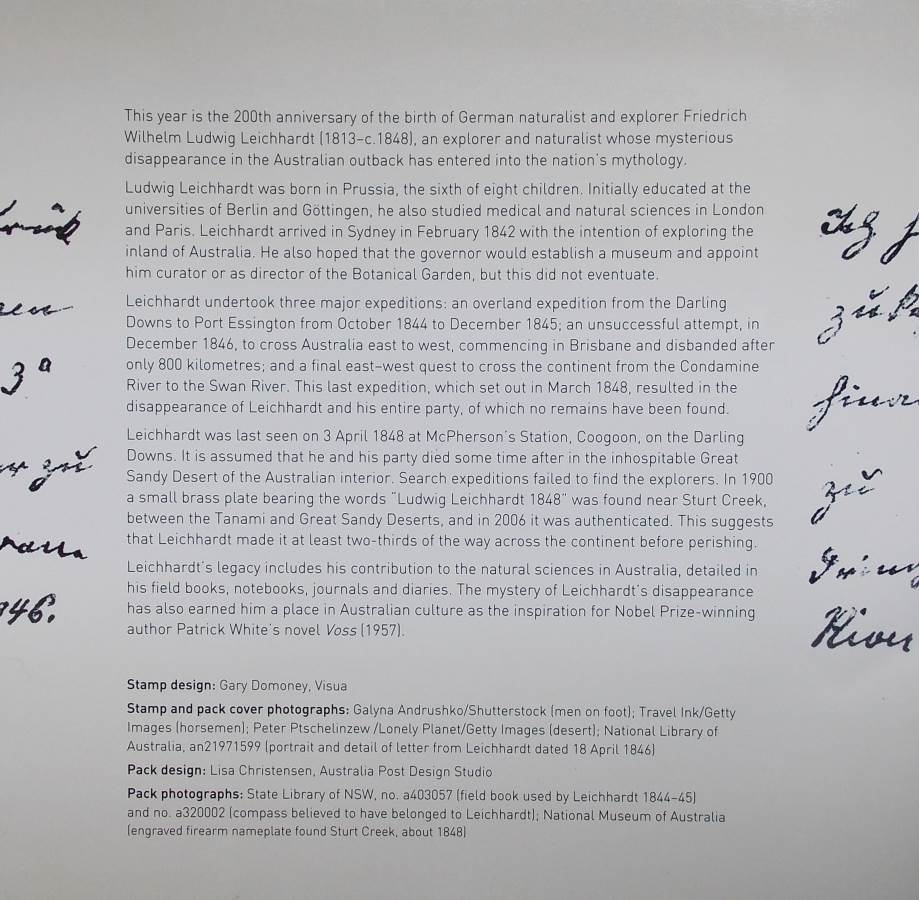 This year is the 200th anniversary of the birth of German naturalist and explorer Friedrich
Wilhelm Ludwig Leichhardt (1813–c.1848), an explorer and naturalist whose mysterious
disappearance in the Australian outback has entered into the nation's mythology.
Ludwig Leichhardt was born in Prussia, the sixth of eight children. Initially educated at the
universities of Berlin and Göttingen, he also studied medical and natural sciences in London
and Paris. Leichhardt arrived in Sydney in February 1842 with the intention of exploring the
inland of Australia. He also hoped that the governor would establish a museum and appoint
him curator or as director of the Botanical Garden, but this did not eventuate.
Leichhardt undertook three major expeditions: an overland expedition from the Darling
Downs to Port Essington from October 1844 to December 1845; an unsuccessful attempt, in
December 1846, to cross Australia east to west, commencing in Brisbane and disbanded after
only 800 kilometres; and a final east–west quest to cross the continent from the Condamine
River to the Swan River. This last expedition, which set out in March 1848, resulted in the
disappearance of Leichhardt and his entire party, of which no remains have been found.
Leichhardt was last seen on 3 April 1848 at McPherson's Station, Coogoon, on the Darling
Downs. It is assumed that he and his party died some time after in the inhospitable Great
Sandy Desert of the Australian interior. Search expeditions failed to find the explorers. In 1900
a small brass plate bearing the words "Ludwig Leichhardt 1848" was found near Sturt Creek,
between the Tanami and Great Sandy Deserts, and in 2006 it was authenticated. This suggests
that Leichhardt made it at least two-thirds of the way across the continent before perishing.
Leichhardt's legacy includes his contribution to the natural sciences in Australia, detailed in
his field books, notebooks, journals and diaries. The mystery of Leichhardt's disappearance
has also earned him a place in Australian culture as the inspiration for Nobel Prize-winning
author Patrick White's novel Voss (1957).
Stamp design: Gary Domoney, Visua
Stamp and pack cover photographs: Galyna Andrushko/Shutterstock (men on foot); Travel Ink/Getty
Images (horsemen); Peter Ptschelinzew /Lonely Planet/Getty Images (desert); National Library of
Australia, an21971599 (portrait and detail of letter from Leichhardt dated 18 April 1846)
Pack design: Lisa Christensen, Australia Post Design Studio
Pack photographs: State Library of NSW, no. a403057 (field book used by Leichhardt 1844–45)
and no. a320002 (compass believed to have belonged to Leichhardt); National Museum of Australia
(engraved firearm nameplate found Sturt Creek, about 1848)
3
zu
46.
zu
zu